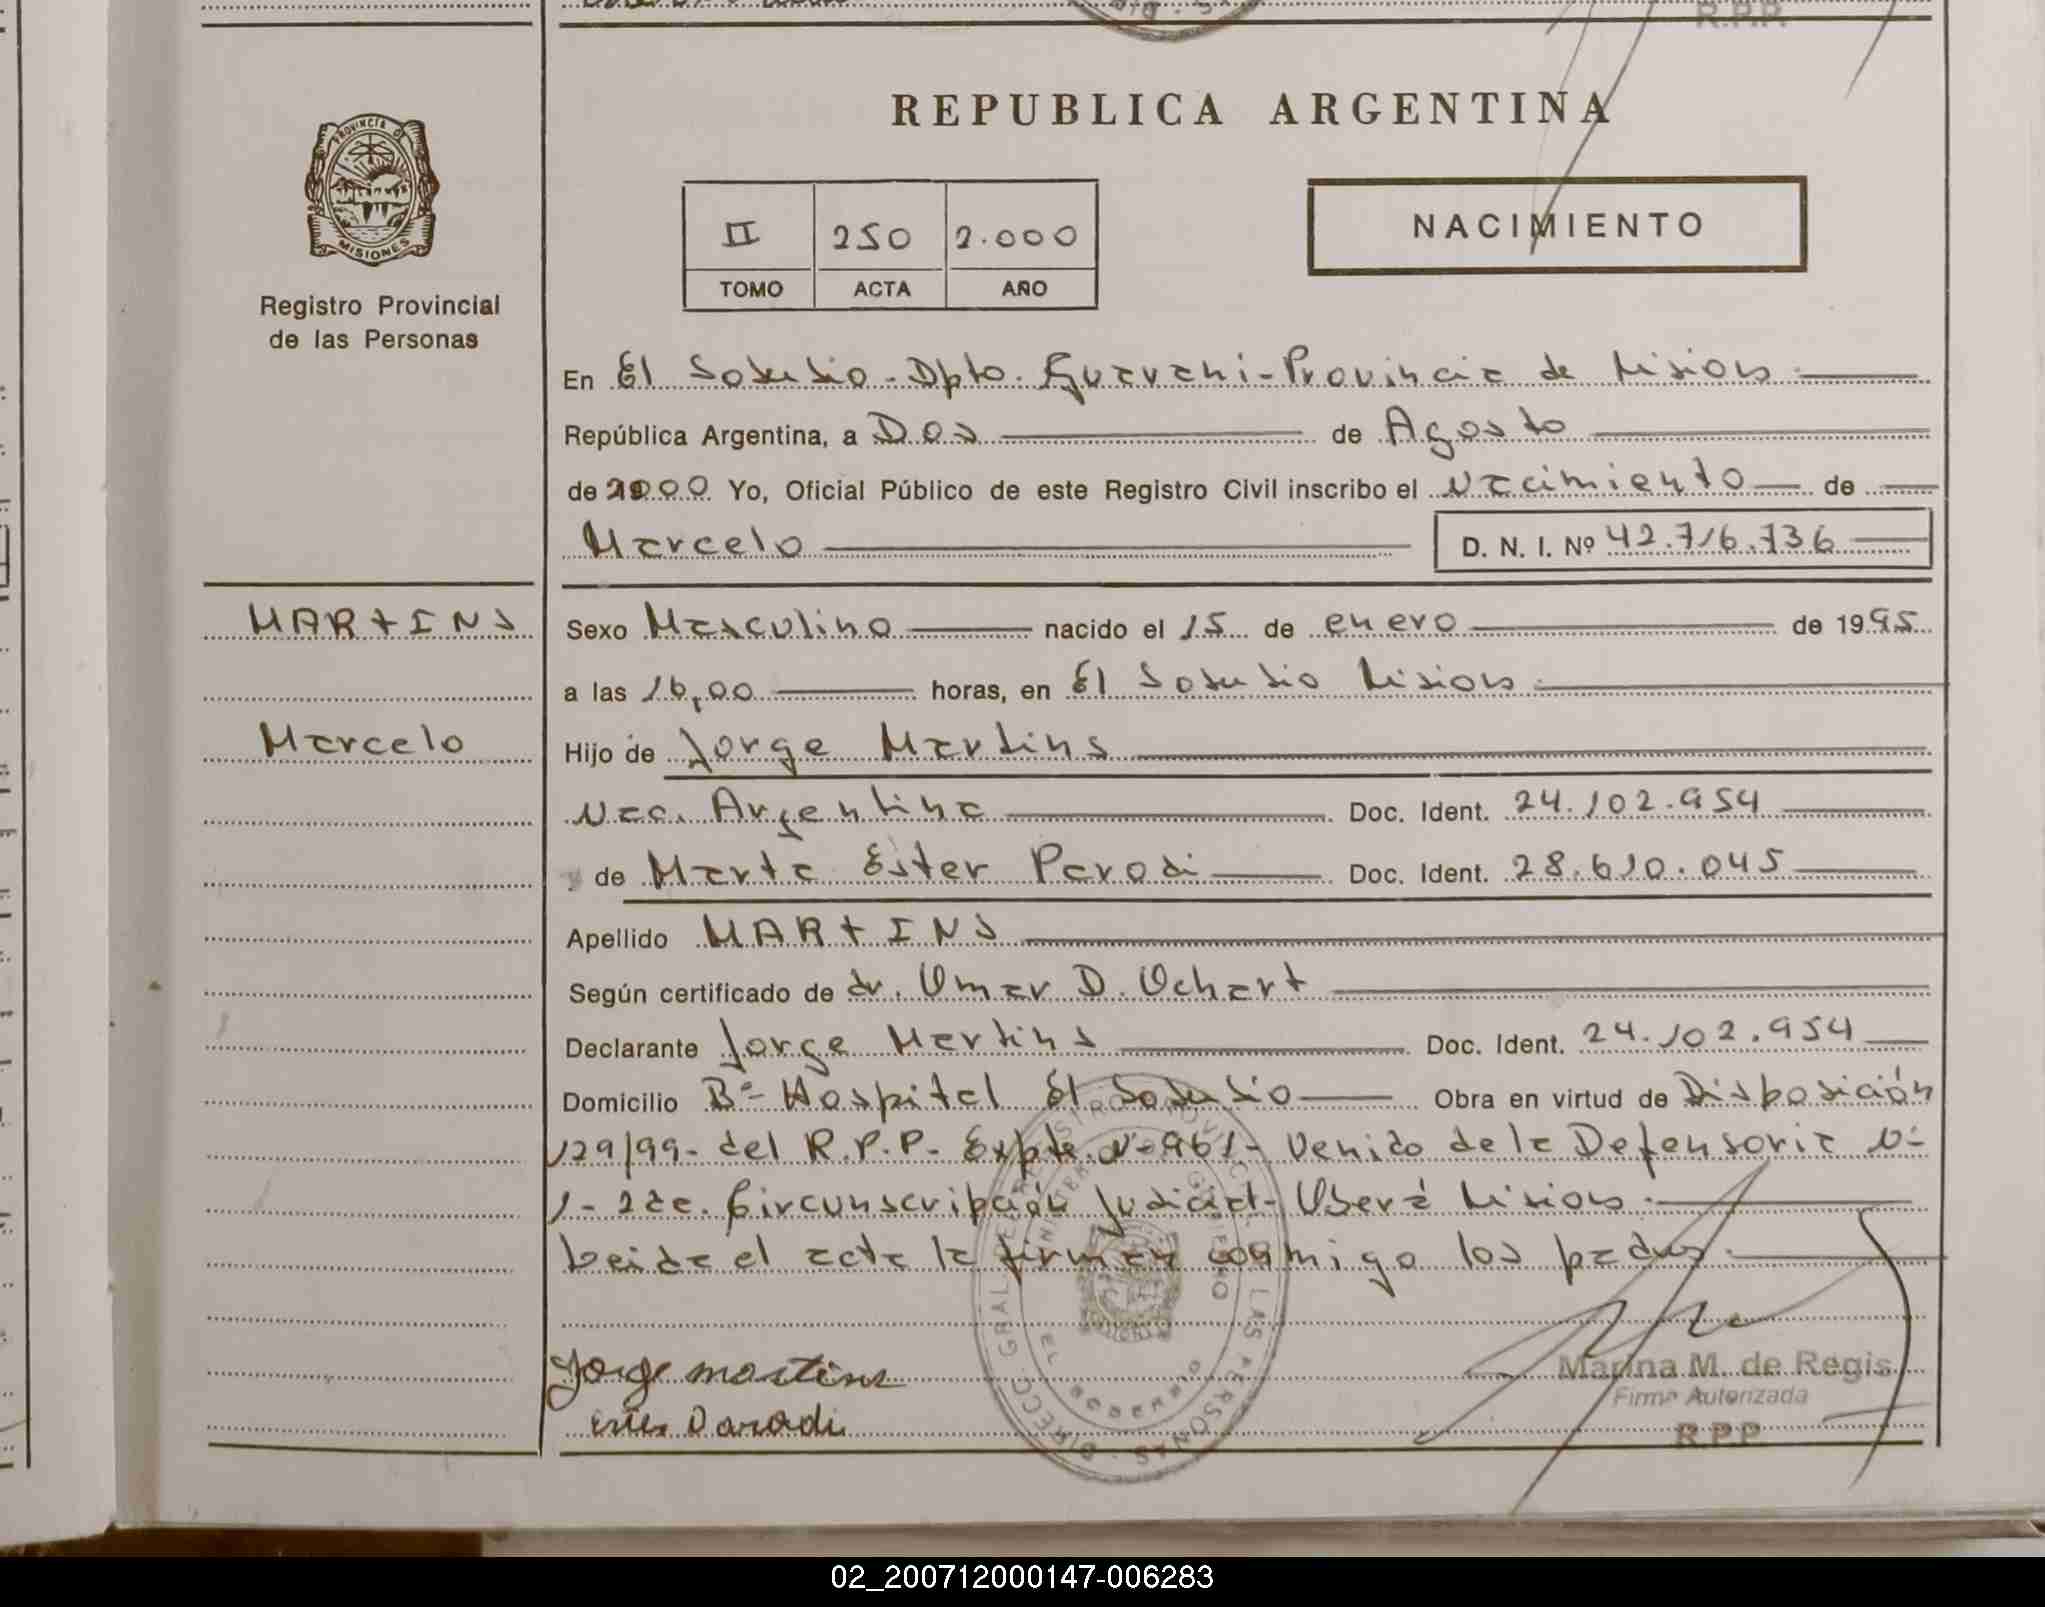 REPUBLICA ARGENTINA
PROVINCIA DE
MISIONES
Registro Provincial
de las Personas
II 250 2.000
TOMO ACTA AÑO
NACIMIENTO
En El Soberbio - Dpto. Guarani - Provincia de Misiones
República Argentina, a Dos de Agosto
de 2000 Yo, Oficial Público de este Registro Civil inscribo el nacimiento de
Marcelo D. N. I. Nº 42.716.736
MARTINS
Marcelo
Sexo Masculino nacido el 15 de enero de 1995
a las 16,00 horas, en El Soberbio Misiones
Hijo de Jorge Martins
Nac. Argentina Doc. Ident. 24.102.954
y de Marta Ester Parodi Doc. Ident. 28.610.045
Apellido MARTINS
Según certificado de dr. Omar D. Ochart
Declarante Jorge Martins Doc. Ident. 24.102.954
Domicilio Bº Hospital El Soberbio Obra en virtud de Disposición
129/99 - del R.P.P. - Expte. Nº 961 - Venido de la Defensoria Nº
1 - 2da. Circunscripción Judicial - Oberá Misiones
Leida el acta la firman conmigo los padres.
Jorge martins
ester Parodi
Marina M. de Regis
Firma Autorizada
R.P.P.
DIRECC. GRAL. DEL REGISTRO PROVINCIAL DE LAS PERSONAS
EL SOBERBIO
02_200712000147-006283